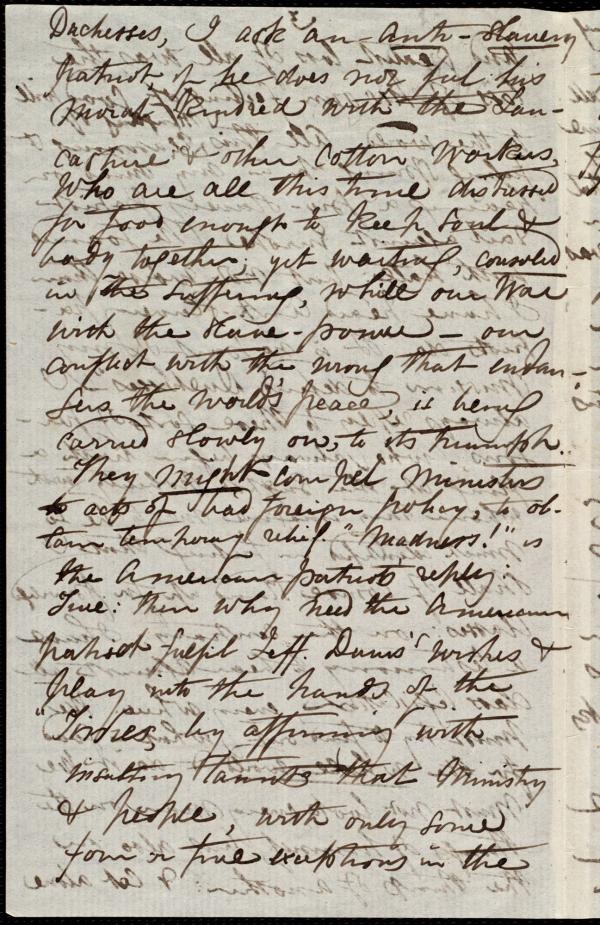 Duchesses, I ask an anti-slavery
patriot, if he does not feel his
moral kindred with the Lan-
cashire & other cotton workers,
who are all this time distressed
for food enough to keep soul &
body together; yet waiting, consoled
in the suffering, while our War
with the slave-power – our
conflict with the wrong that endan-
gers the world's peace, is being
carried slowly on, to its triumph.
They might compel Ministers
to acts of bad foreign policy, to ob-
tain temporary relief. "Madness!" is
the American patriot's reply.
True: then why need the American
patriot fulfil Jeff. Davis' wishes &
play into the hands of the
"Times, by affirming with
insulting taunts that Ministry
& people, with only some
four or five exceptions in the